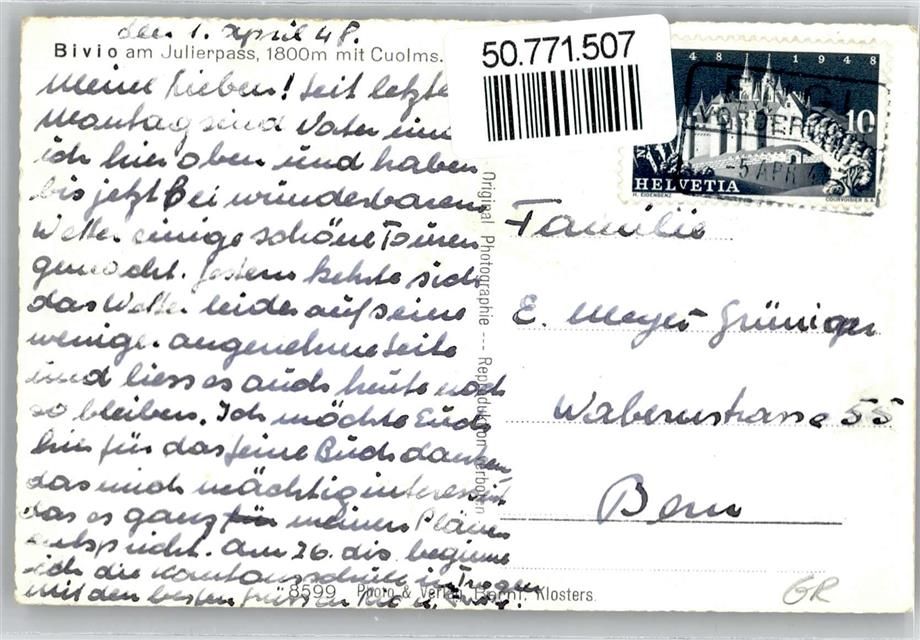 den 1. April 48.
Bivio am Julierpass, 1800m mit Cuolms.
Meine Lieben! Seit letzte
Montag sind Vater und
ich hier oben und haben
bis jetzt bei wunderbarem
Wetter einige schöne Touren
gemacht. Gestern kehrte sich
das Wetter leider auf seine
weniger angenehme Seite
und liess es auch heute noch
so bleiben. Ich möchte Euch
hier für das feine Buch danken
das mich mächtig interessiert
das es ganz meinen Plänen
entspricht. Am 26. dis. beginne
ich die Kantonsschule in Trogen
Mit den besten Grüssen
8599 Photo & Verlag Berni. Klosters.
Original Photographie --- Reproduktion verboten
50.771.507
48 1948
10
VORDER
-5 APR 4
HELVETIA
H. EIDENBENZ COURVOISIER S.A.
Familie
E. Meyer-Grüniger
Wabernstrasse 55
Bern
GR